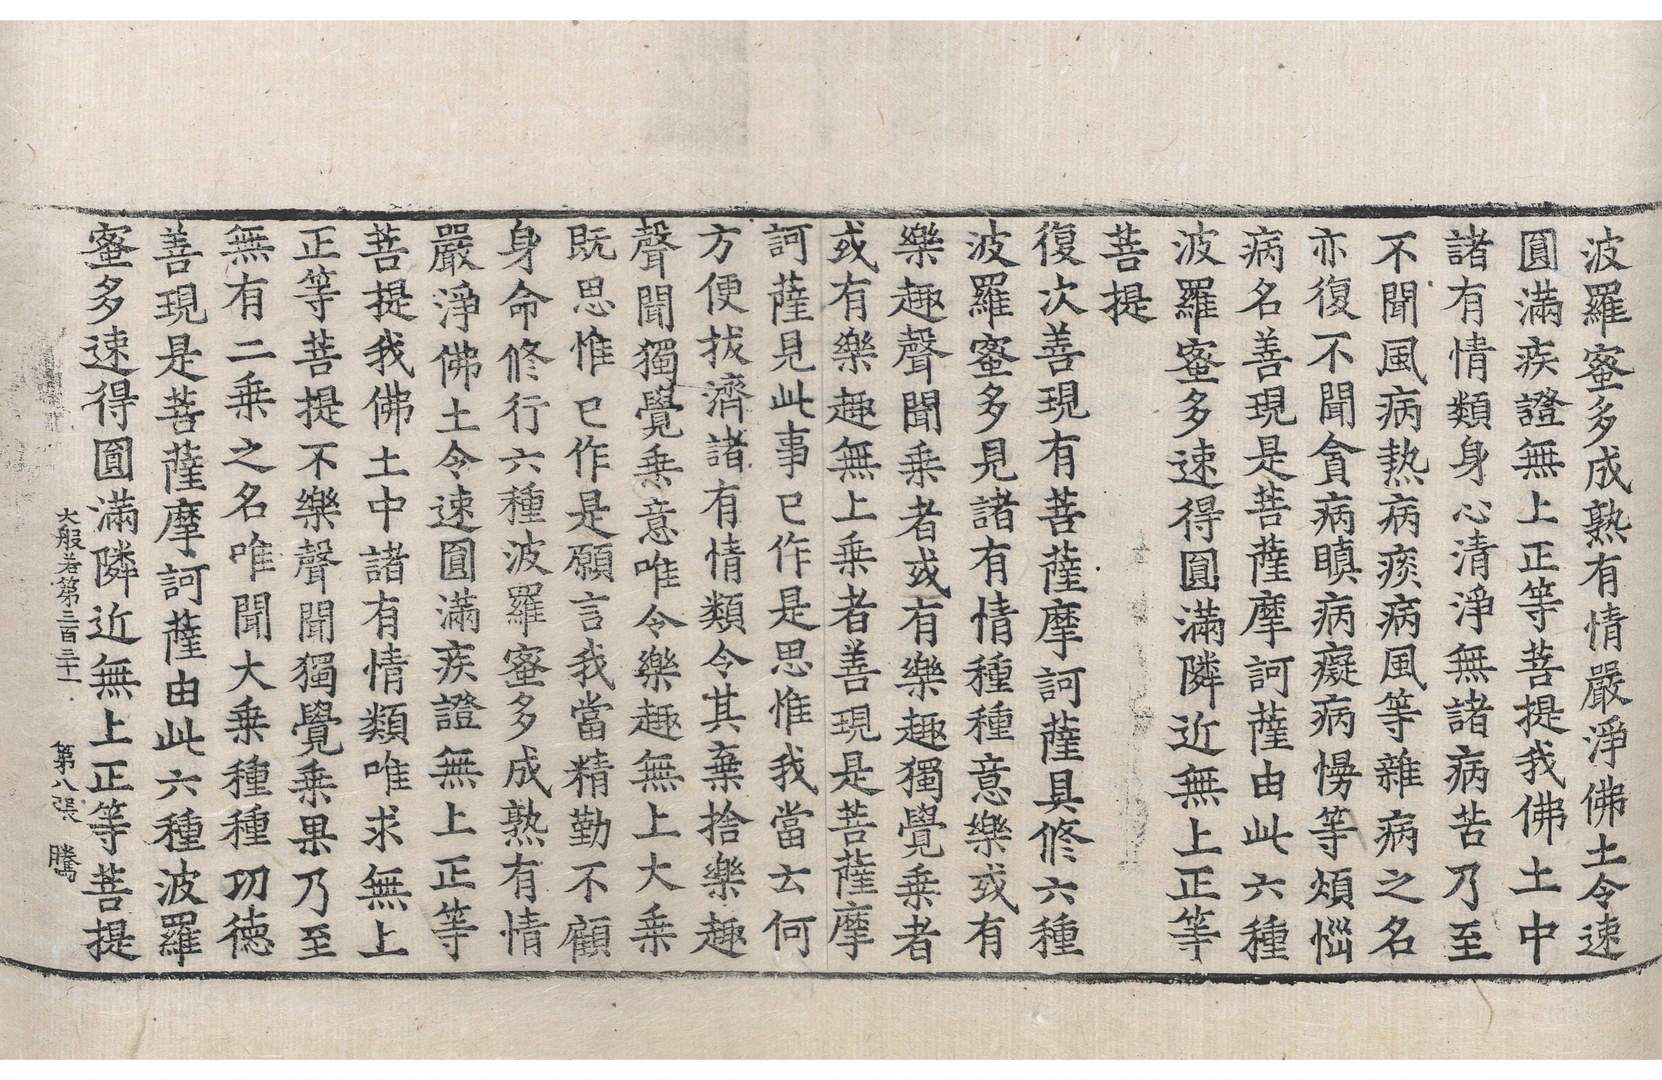 波羅蜜多成熟有情嚴淨佛土令速
圓滿疾證無上正等菩提我佛土中
諸有情類身心清淨無諸病苦乃至
不聞風病熱病痰病風等雜病之名
亦復不聞貪病瞋病癡病慢等煩惱
病名善現是菩薩摩訶薩由此六種
波羅蜜多速得圓滿隣近無上正等
菩提
復次善現有菩薩摩訶薩具修六種
波羅蜜多見諸有情種種意樂或有
樂趣聲聞乘者或有樂趣獨覺乘者
或有樂趣無上乘者善現是菩薩摩
訶薩見此事已作是思惟我當云何
方便拔濟諸有情類令其棄捨樂趣
聲聞獨覺乘意唯令樂趣無上大乘
既思惟已作是願言我當精勤不顧
身命修行六種波羅蜜多成熟有情
嚴淨佛土令速圓滿疾證無上正等
菩提我佛土中諸有情類唯求無上
正等菩提不樂聲聞獨覺乘果乃至
無有二乘之名唯聞大乘種種功德
善現是菩薩摩訶薩由此六種波羅
蜜多速得圓滿隣近無上正等菩提
大般若第三百三十一 第八張 騰